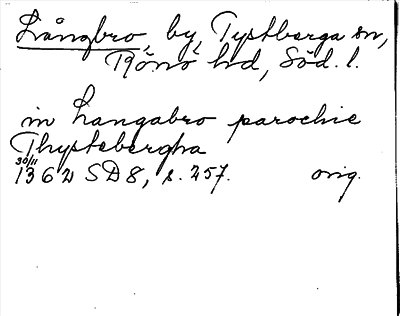 Långbro, by, Tystberga sn,
Rönö hd, Söd. l.
in Langabro parochie
Thystebergha
30/11
1362 SD8, s. 257. orig.